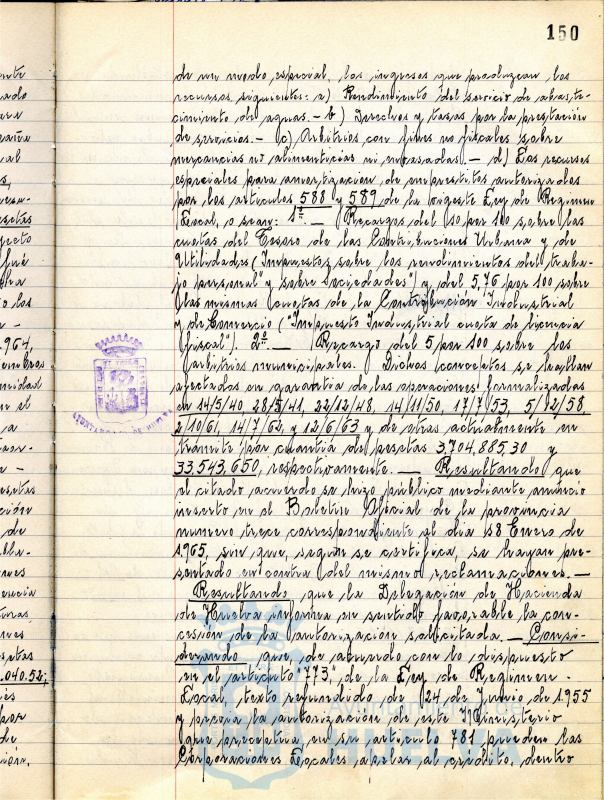 150
de un modo especial, los ingresos que produzcan los
recursos siguientes: a) Rendimiento del servicio de abaste-
cimiento de aguas.- b) Derechos y tasas por la prestación
de servicios.- c) Arbitrios con fines no fiscales sobre
mercancías no alimenticias ni envasadas).- d) Los recursos
especiales para amortización de empréstitos autorizados
por los artículos 588 y 589 de la vigente Ley de Regimen
Local, o sean: 1º.— (Recargos del 10 por 100 sobre las
cuotas del Tesoro de las Contribuciones Urbana y de
Utilidades (Impuestos sobre los rendimientos del traba-
jo personal" y sobre Sociedades") y del 5,76 por 100 sobre
las mismas cuotas de la Contribución Industrial
y de Comercio ("Impuesto Industrial cuota de licencia
fiscal"). 2º.— Recargo del 5 por 100 sobre los
arbitrios municipales. Dichos conceptos se hallan
afectados en garantía de las operaciones formalizadas
en 14/5/40, 28/5/41, 22/12/48, 14/11/50, 17/7/53, 5/12/58
2/10/61, 14/7/62, y 12/6/63 y de otras actualmente en
trámite por cuantía de pesetas 3,704,885,30 y
33,543,650, respectivamente.— Resultando, que
el citado acuerdo se hizo público mediante anuncio
inserto en el Boletín Oficial de la provincia
numero trece correspondiente al día 18 Enero de
1.965, sin que, según se certifica, se hayan pre-
sentado en contra del mismo reclamaciones.—
Resultando, que la Delegación de Hacienda
de Huelva informa en sentido favorable la con-
cesión de la autorización solicitada.— Consi-
derando, que, de acuerdo con lo dispuesto
en el artículo "773," de la Ley de Regimen
Local, texto refundido de 24 de Junio de 1955
y previa la autorización de este Ministerio
que preceptua en su artículo 781 pueden las
Corporaciones Locales apelar al crédito, dentro
AYUNTAMIENTO DE HUELVA
Ayuntamiento de
HUELVA